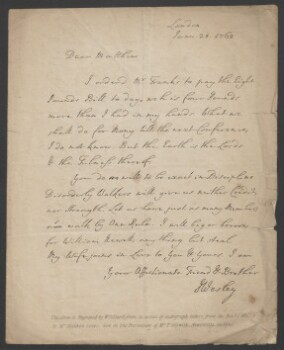 London
June 20. 1760
Dear
I ordered Mr Franks to pay the Eight
Pounds Bill to day, wch is four Pounds
more than I had in my hands. What we
shall do for Money till the next Conference
I do not know. But the Earth is the Lord's
& the Fulness thereof.
You do well to be exact in Discipline
Disorderly Walkers will give us neither Credit
nor Strength. Let us have just as many Members
as walk by One Rule. I will beg or borrow
for William Newall any thing but steal.
My Wife joins in Love to You & Yours. I am
Your Affectionate Friend & Brother
J Wesley